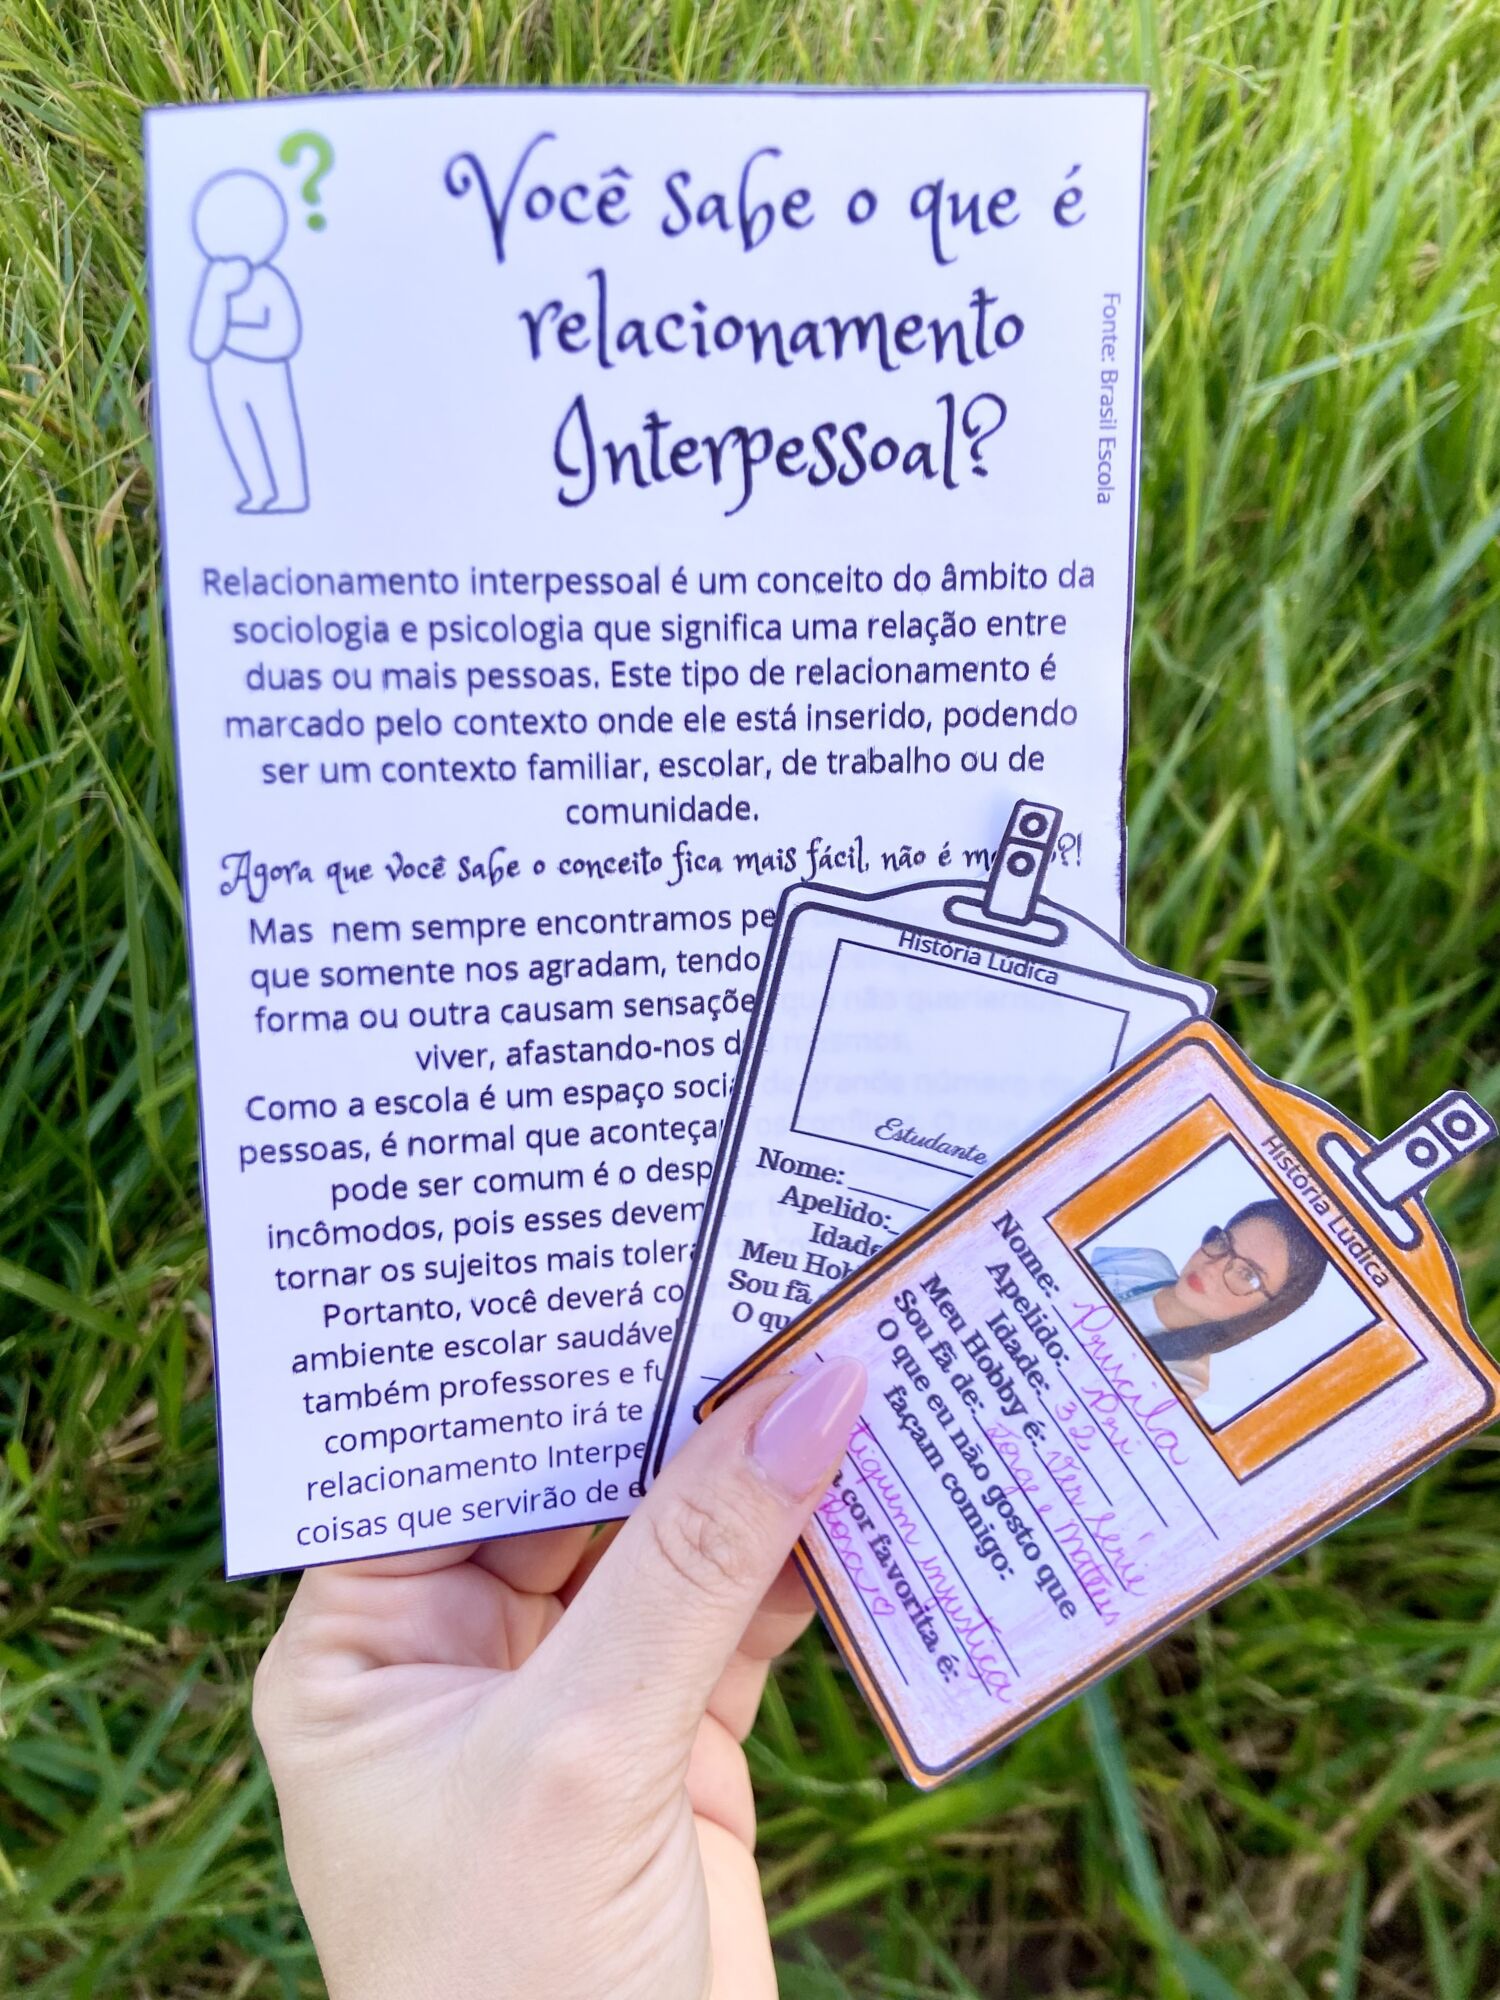 ?
Você sabe o que é
relacionamento
Interpessoal?
Fonte: Brasil Escola
Relacionamento interpessoal é um conceito do âmbito da
sociologia e psicologia que significa uma relação entre
duas ou mais pessoas. Este tipo de relacionamento é
marcado pelo contexto onde ele está inserido, podendo
ser um contexto familiar, escolar, de trabalho ou de
comunidade.
Agora que você sabe o conceito fica mais fácil, não é ?!
Mas nem sempre encontramos pe
que somente nos agradam, tendo
forma ou outra causam sensaçõe
viver, afastando-nos d
Como a escola é um espaço soci
pessoas, é normal que aconteça
pode ser comum é o desp
incômodos, pois esses devem
tornar os sujeitos mais toler
Portanto, você deverá co
ambiente escolar saudáve
também professores e fu
comportamento irá te
relacionamento Interpe
coisas que servirão de e
História Lúdica
Estudante
Nome:
Apelido:
Idade
Meu Hob
Sou fã
O qu
História Lúdica
Nome: Priscila
Apelido: Pri
Idade: 32
Meu Hobby é: ver série
Sou fã de: Jorge e Mateus
O que eu não gosto que
façam comigo:
tiquem injustiça
cor favorita é:
Rosa ♡